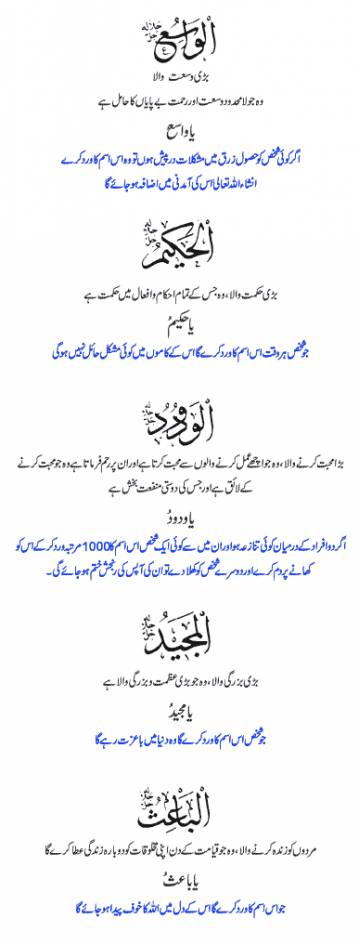 الْوَاسِعُ جل جلالہ
بڑی وسعت والا
وہ جو لامحدود وسعت اور رحمت بے پایاں کا حامل ہے
یا واسع
اگر کوئی شخص کو حصول زرق میں مشکلات درپیش ہوں تو وہ اس اسم کا ورد کرے
انشاء اللہ تعالیٰ اس کی آمدنی میں اضافہ ہو جائے گا
الْحَكِيْمُ جل جلالہ
بڑی حکمت والا، وہ جس کے تمام احکام و افعال میں حکمت ہے
یا حکیمُ
جو شخص ہر وقت اس اسم کا ورد کرے گا اس کے کاموں میں کوئی مشکل حائل نہیں ہوگی
الْوَدُوْدُ جل جلالہ
بڑا محبت کرنے والا، وہ جو اچھے عمل کرنے والوں سے محبت کرتا ہے اور ان پر رحم فرماتا ہے وہ جو محبت کرنے
کے لائق ہے اور جس کی دوستی منفعت بخش ہے
یا ودودُ
اگر دو افراد کے درمیان کوئی تنازعہ ہو اور ان میں سے کوئی ایک شخص اس اسم کا 1000 مرتبہ ورد کر کے اس کو
کھانے پر دم کرے اور دوسرے شخص کو کھلا دے تو ان کی آپس کی رنجش ختم ہو جائے گی۔
الْمَجِيْدُ جل جلالہ
بڑی بزرگی والا، وہ جو بڑی عظمت و بزرگی والا ہے
یا مجیدُ
جو شخص اس اسم کا ورد کرے گا وہ دنیا میں باعزت رہے گا
الْبَاعِثُ جل جلالہ
مردوں کو زندہ کرنے والا، وہ جو قیامت کے دن اپنی مخلوقات کو دوبارہ زندگی عطا کرے گا
یا باعثُ
جو اس اسم کا ورد کرے گا اس کے دل میں اللہ کا خوف پیدا ہو جائے گا